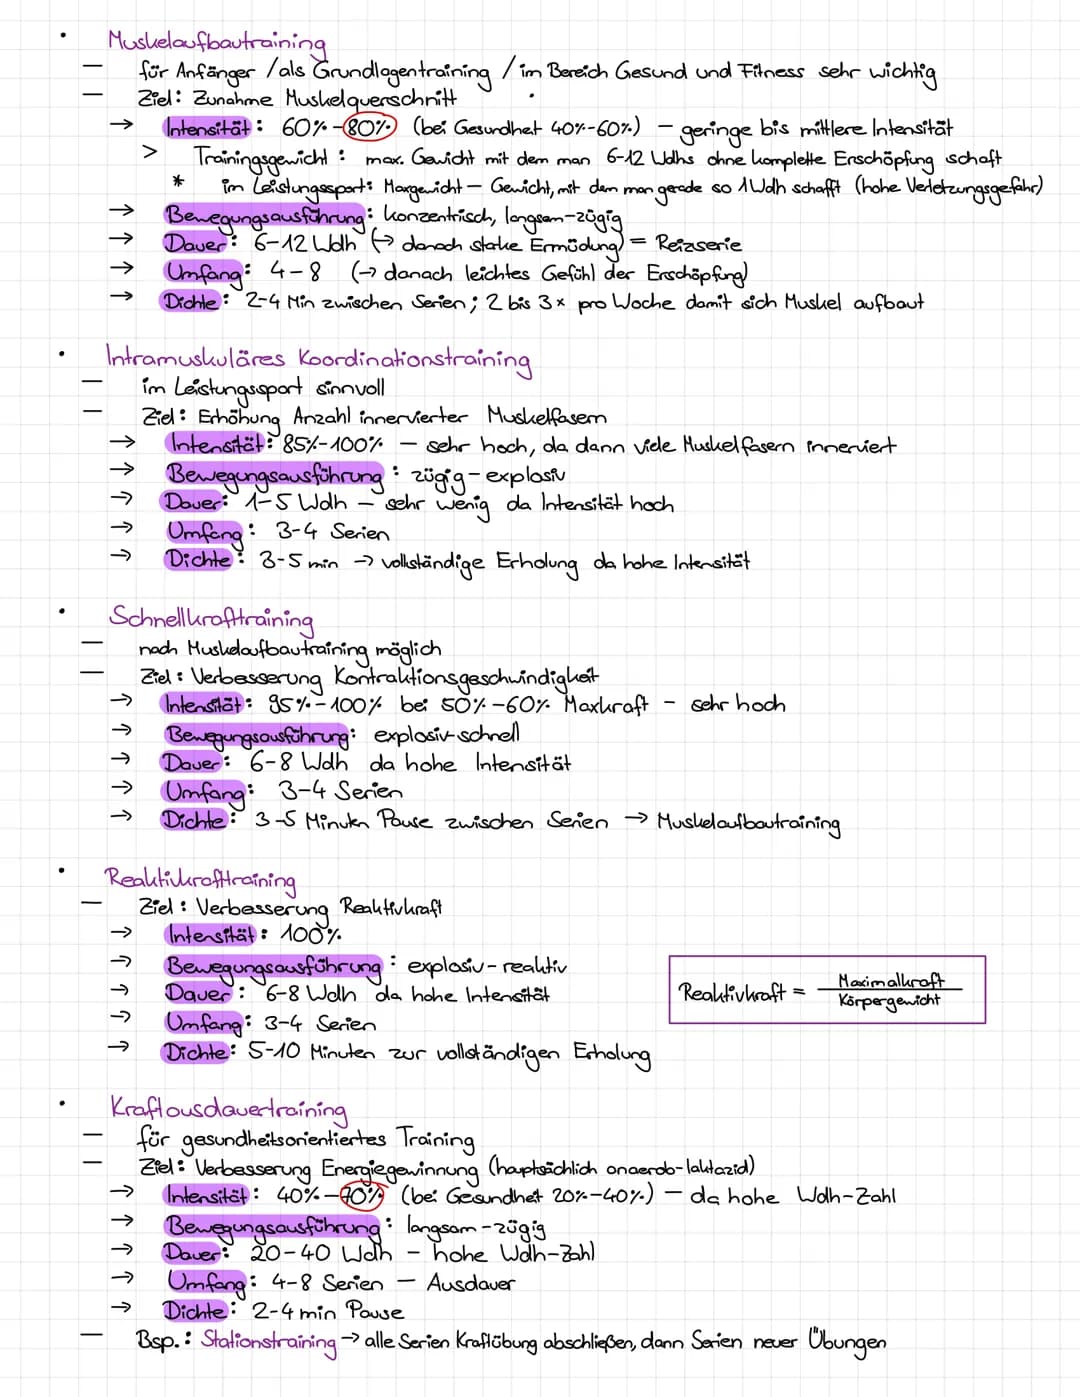 • Muskelaufbautraining
– für Anfänger / als Grundlagentraining / im Bereich Gesund und Fitness sehr wichtig
– Ziel: Zunahme Muskelquerschnitt
→ Intensität: 60% - 80% (bei Gesundheit 40%-60%) – geringe bis mittlere Intensität
> Trainingsgewicht: max. Gewicht mit dem man 6-12 Wdhs ohne komplette Erschöpfung schaft
* im Leistungssport: Maxgewicht – Gewicht, mit dem man gerade so 1 Wdh schafft (hohe Verletzungsgefahr)
→ Bewegungsausführung: konzentrisch, langsam-zügig
→ Dauer: 6-12 Wdh (→ danach starke Ermüdung) = Reizserie
→ Umfang: 4-8 (→ danach leichtes Gefühl der Erschöpfung)
→ Dichte: 2-4 Min zwischen Serien; 2 bis 3x pro Woche damit sich Muskel aufbaut
• Intramuskuläres Koordinationstraining
– im Leistungssport sinnvoll
– Ziel: Erhöhung Anzahl innervierter Muskelfasern
→ Intensität: 85%-100% – sehr hoch, da dann viele Muskelfasern innerviert
→ Bewegungsausführung: zügig-explosiv
→ Dauer: 1-5 Wdh – sehr wenig da Intensität hoch
→ Umfang: 3-4 Serien
→ Dichte: 3-5 min → vollständige Erholung da hohe Intensität
• Schnellkrafttraining
– nach Muskelaufbautraining möglich
– Ziel: Verbesserung Kontraktionsgeschwindigkeit
→ Intensität: 95%-100% bei 50%-60% Maxkraft – sehr hoch
→ Bewegungsausführung: explosiv-schnell
→ Dauer: 6-8 Wdh da hohe Intensität
→ Umfang: 3-4 Serien
→ Dichte: 3-5 Minuten Pause zwischen Serien → Muskelaufbautraining
• Reaktivkrafttraining
– Ziel: Verbesserung Reaktivkraft
→ Intensität: 100%
→ Bewegungsausführung: explosiv-reaktiv
→ Dauer: 6-8 Wdh da hohe Intensität
→ Umfang: 3-4 Serien
→ Dichte: 5-10 Minuten zur vollständigen Erholung
Reaktivkraft = Maximalkraft
Körpergewicht
• Kraftausdauertraining
– für gesundheitsorientiertes Training
– Ziel: Verbesserung Energiegewinnung (hauptsächlich anaerob-laktazid)
→ Intensität: 40%-70% (bei Gesundheit 20%-40%) – da hohe Wdh-Zahl
→ Bewegungsausführung: langsam-zügig
→ Dauer: 20-40 Wdh – hohe Wdh-Zahl
→ Umfang: 4-8 Serien – Ausdauer
→ Dichte: 2-4 min Pause
– Bsp.: Stationstraining → alle Serien Kraftübung abschließen, dann Serien neuer Übungen